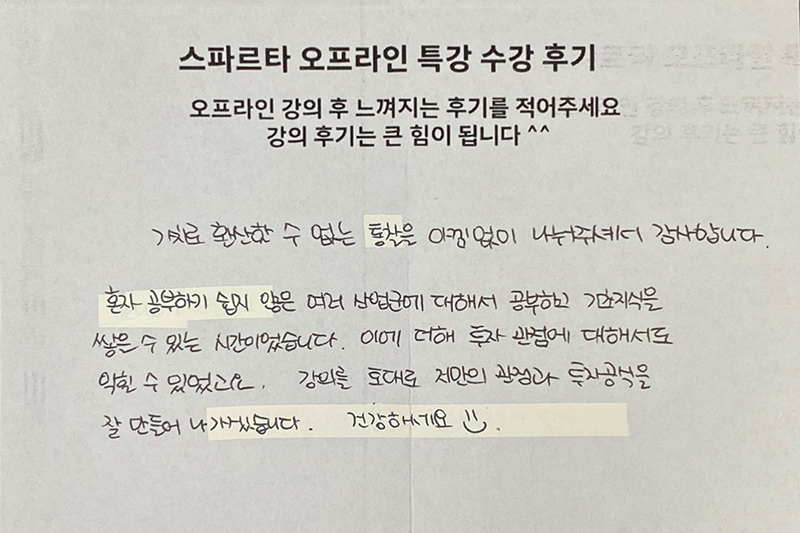 스파르타 오프라인 특강 수강 후기
오프라인 강의 후 느껴지는 후기를 적어주세요
강의 후기는 큰 힘이 됩니다 ^^
가치로 환산할 수 없는 통찰을 아낌없이 나눠주셔서 감사합니다.
혼자 공부하기 쉽지 않은 여러 산업군에 대해서 공부하고 기반지식을
쌓을 수 있는 시간이었습니다. 이에 더해 투자 관점에 대해서도
익힐 수 있었고요. 강의를 토대로 저만의 관점과 투자공식을
잘 만들어 나가겠습니다. 건강하세요